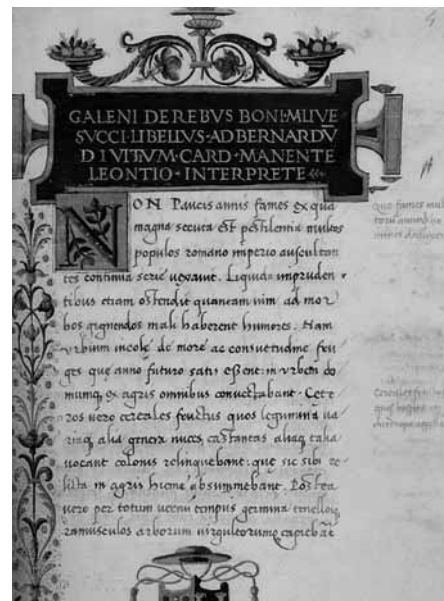 GALENI DE REBVS BONI·MLIVE
SVCCI·LIBELLVS·AD BERNARDV̄
DIVITVM·CARD·MANENTE
LEONTIO·INTERPRETE
NON Paucis annis fames ex qua
magna secuta est pestilentia multos
populos romano imperio auscultan
tes continua serie vexavit. Liquido impruden
tibus etiam ostendit quantam vim ad mor
bos gignendos mali haberent humores. Nam
urbium incole de more ac consuetudine fru
ges que anno futuro satis essent: in urbem do
mumq; ex agris omnibus convectabant. Cete
ros vero cereales fructus quos legumina va
riaq; alia genera nuces castaneas aliaq; talia
vocant colonis relinquebant: que sic sibi re
licta in agris hieme absummebant. Postea
vero per totum vernum tempus germina tenelloq;
ramusculos arborum virgultorumq; capiebāt